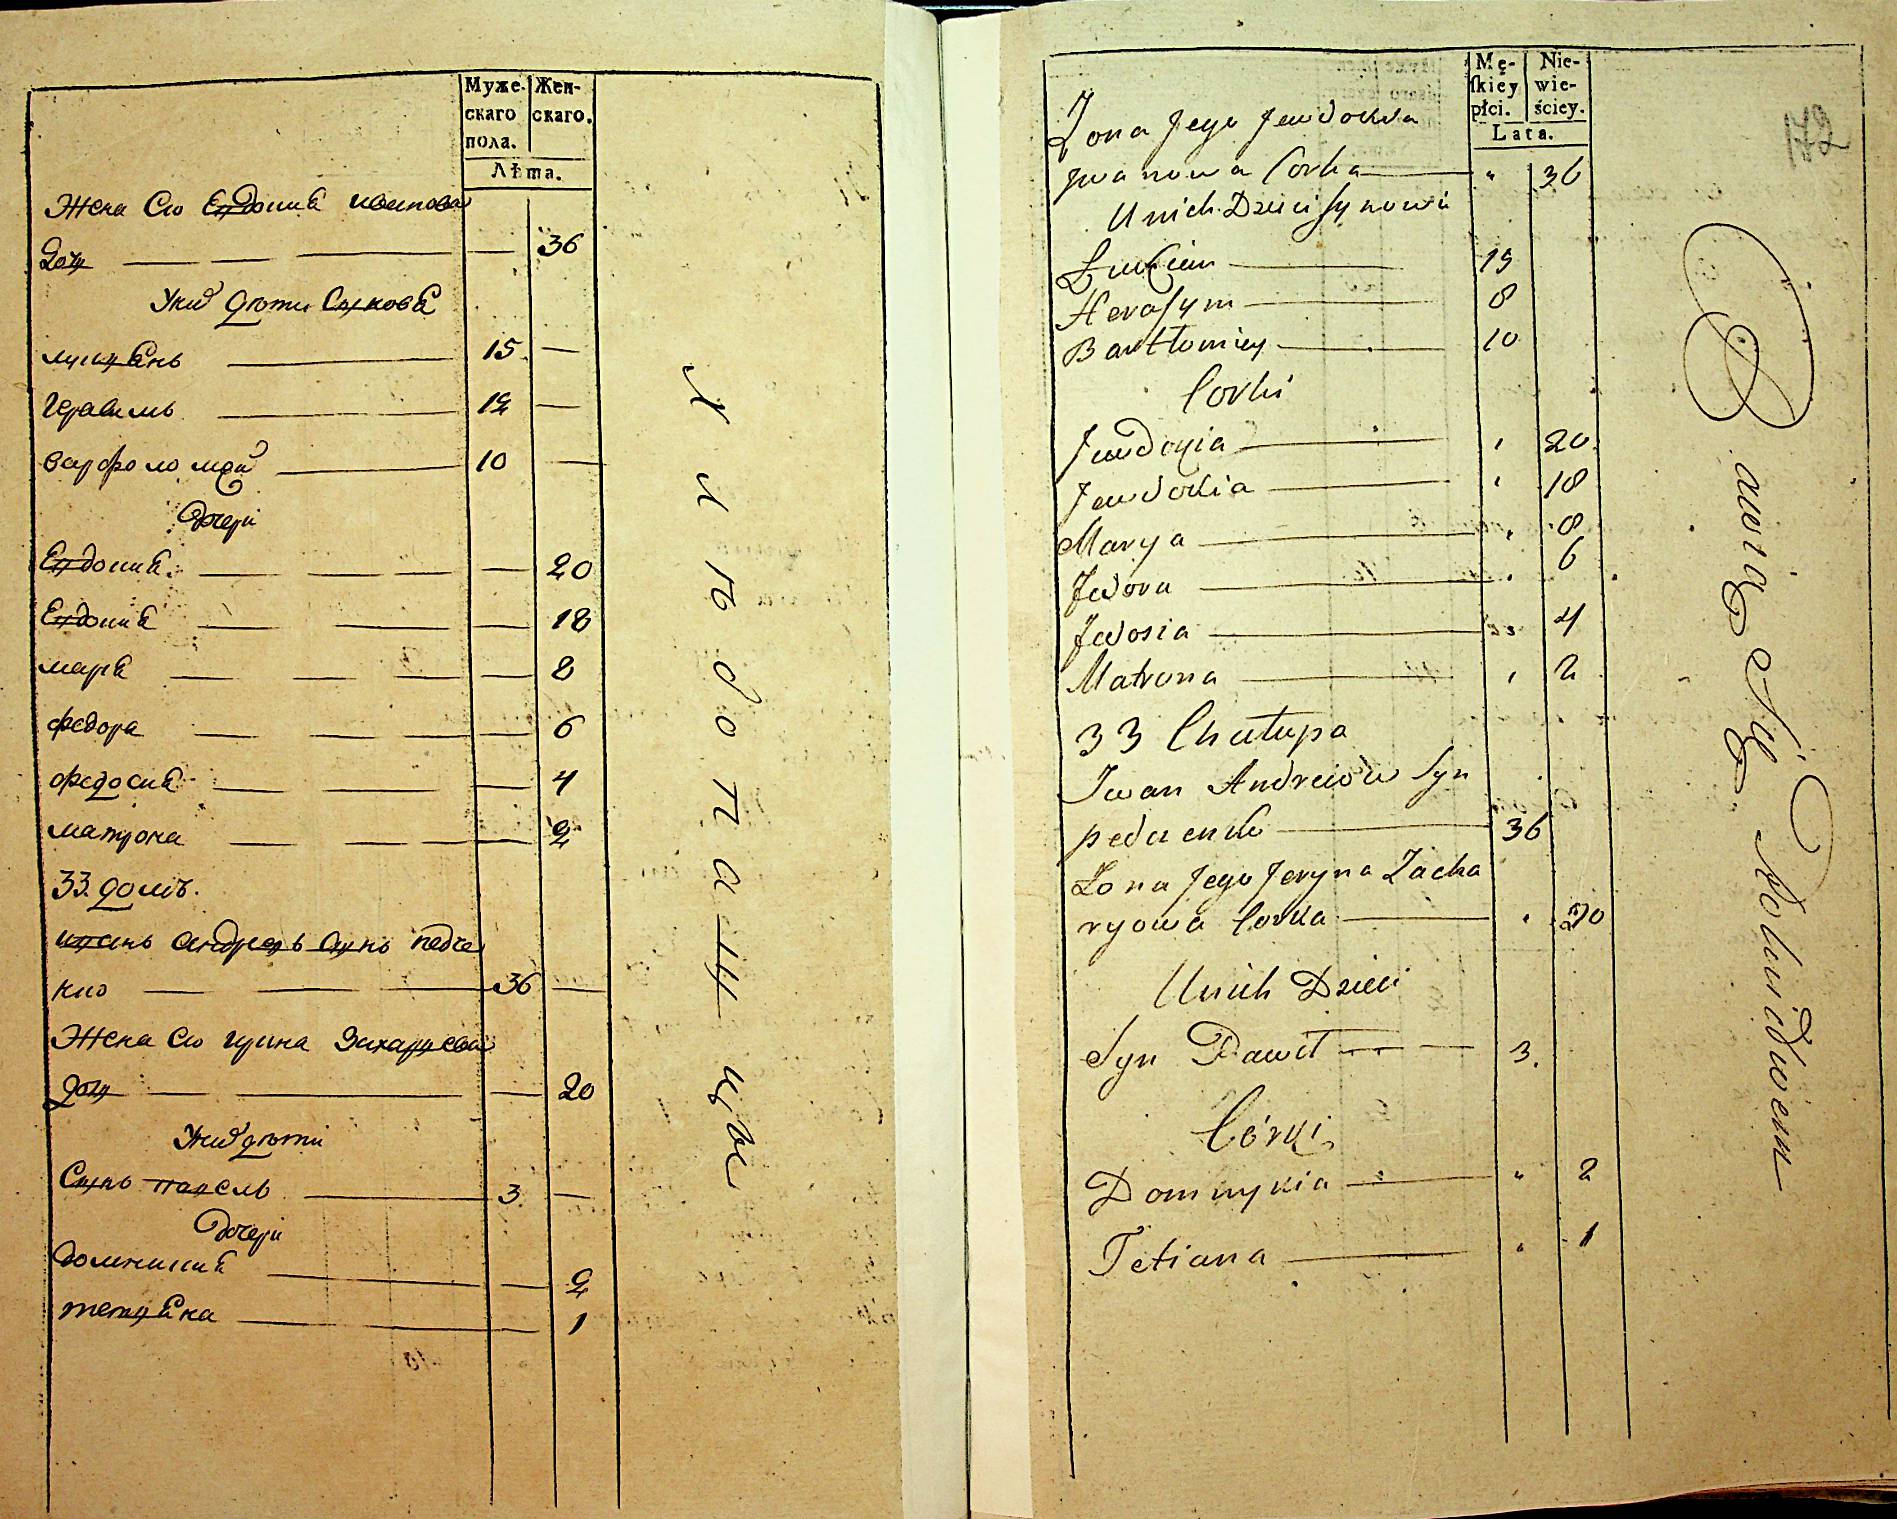 Муже-
скаго
пола.
Жен-
скаго.
Лѣта.
Жена его Евдокия ивапова
дочь 36
У них дѣти Сынове
лукиянь 15
герасимъ 12
варфоломей 10
Дочери
Евдокия 20
Евдокия 18
мария 8
федора 6
федосия 4
матрона 2
33. домъ.
иванъ андреевъ сынъ педче
нко 36
Жена его ирина Захариева
дочь 20
У них дѣти
Сынъ павелъ 3
Дочери
домникия 2
тетияна 1
хлѣбопашцы
172
Mę-
skiey
płci.
Nie-
wie-
ściey.
Lata.
Żona Jego Jewdokia
Jwanowa Corka " 36
U nich Dzieci Synowi
Łukian 15
Herasym 8
Bartłomiey 10
Corki
Jewdokia 20
Jewdokia 18
Marya 8
Fedora 6
Fedosia 4
Matrona 2
33 Chałupa
Iwan Andreiow Syn
pedczenko 36
Żona Jego Jeryna Zacha
ryowa Corka 20
U nich Dzieci
Syn Paweł 3.
Córki
Domnykia " 2
Tetiana 1
Bawią Się Rolnictwem